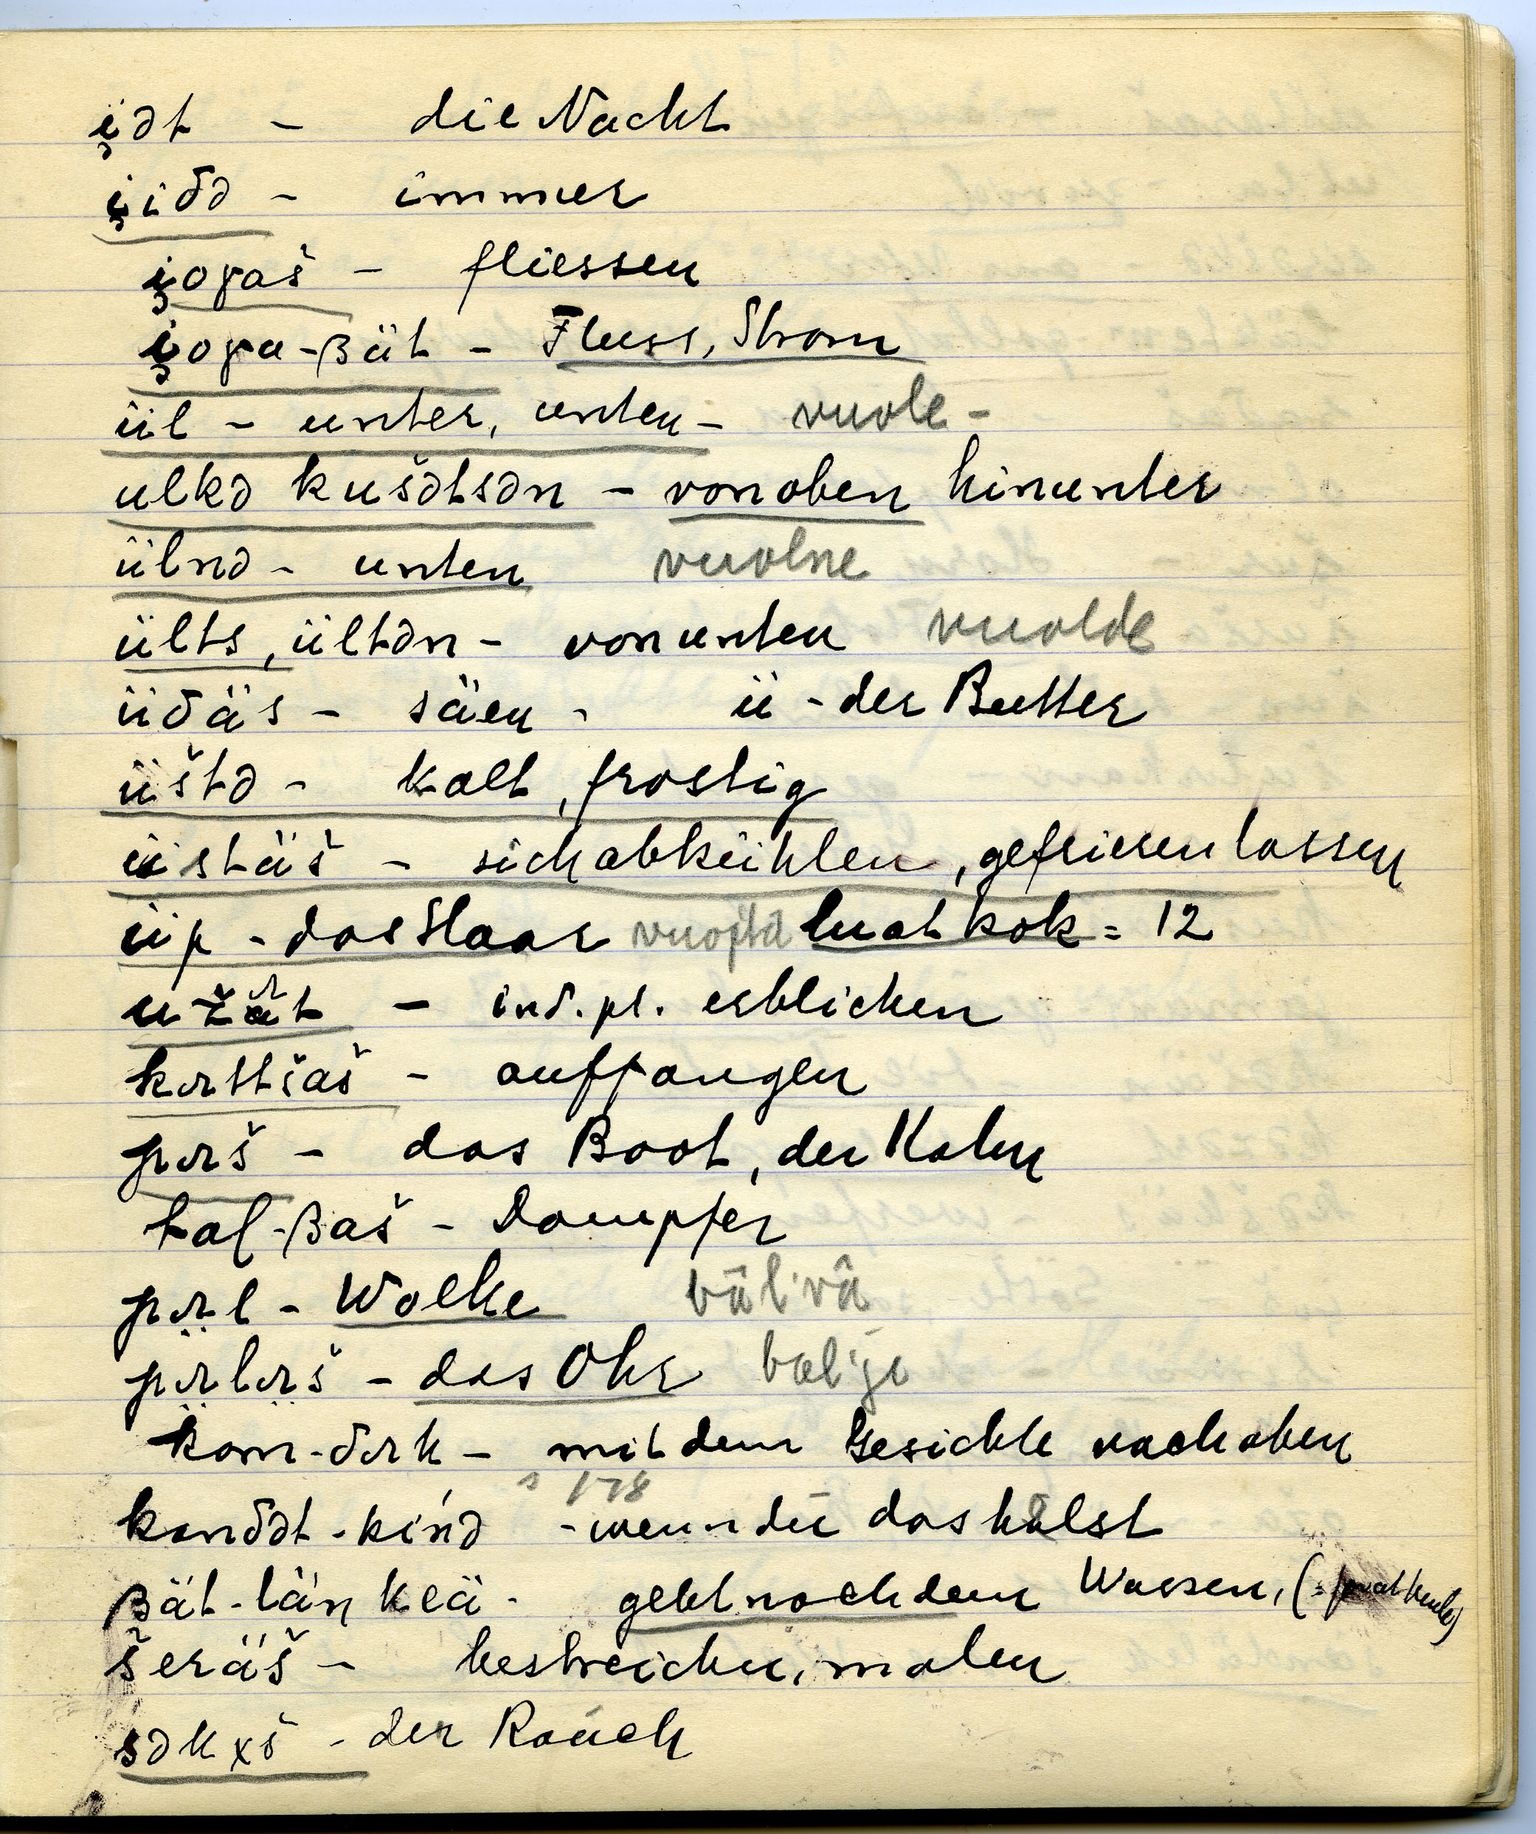 i̮ət - die Nacht
i̮iδə - immer
i̮oɣaš - fliessen
i̮oɣa-βät - Fluss, Strom
ül - unter, unten - vuole -
ulkə kušətsən - von oben hinunter
ülnə - unten vuolne
ülts, ültən - von unten vuolde
üδäs - säen - ü - der Butter
üštə - kalt, frostig
üstäš - sich abkühlen, gefrieren lassen
üp - das Haar vuopta luat kok = 12
užat - ind. pl. erblicken
kɤttšaš - auffangen
pɤš - das Boot, der Kahn
tal-βaš - Dampfer
pɤl - Wolke bälˈvâ
pɤ̈lɤ̈š - das Ohr balˈje
kom-δɤk - mit dem Gesichte nach oben
s 178
kanδət-kińə - wenn du das hälst
βät-läń keä - geht nach dem Wasser,
šeräš - bestreichen, malen
səkχš - der Rauch